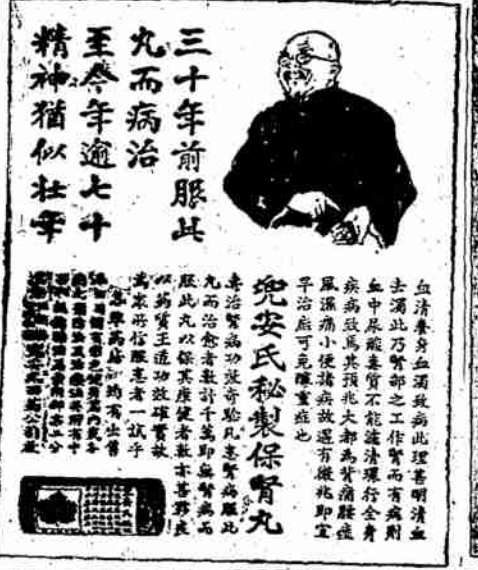 三十年前服此
丸而病治
至今年逾七十
精神猶似壯年
血清養身血濁致病此理甚明清血
去濁此乃腎部之工作腎而有病則
血中尿酸毒質不能濾清環行全身
疾病致焉其預兆大都為背痛腰痠
風濕痛小便諸病故遇有微兆即宜
早治庶可免釀重症也
兜安氏秘製保腎丸
專治腎病功效奇驗凡患腎病服此
丸而治愈者數計千萬即無腎病而
服此丸以保其康健者數亦甚夥良
以藥質王道功效確實故
萬家所信服患者一試乎
各埠藥房均有出售